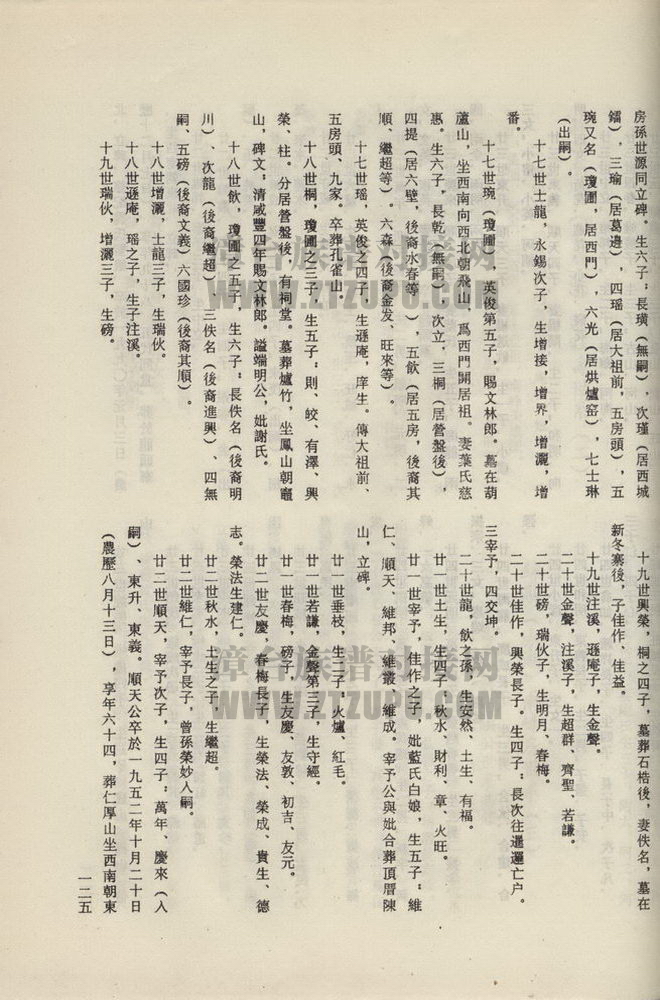 房孫世源同立碑。生六子：長璜（無嗣），次瑾（居西城
鐳），三瑜（居葛邊），四瑤（居大祖前，五房頭），五
琬又名（瓊圃，居西門），六光（居烘爐窑），七士琳
（出嗣）。
十七世士龍，永錫次子，生增接，增界，增灑，增
番。
十七世琬（瓊圃），英俊第五子，賜文林郎。墓在葫
蘆山，坐西南向西北朝飛山，爲西門開居祖。妻葉氏慈
惠。生六子，長乾（無嗣），次立，三桐（居營盤後），
四提（居六壁，後裔水春等），五飲（居五房，後裔其
順、繼超等）。六森（後裔金发、旺來等）。
十七世瑶，英俊之四子，生遜庵，庠生。傳大祖前、
五房頭、九家。卒葬孔雀山。
十八世桐，瓊圃之三子，生五子：則、皎、有澤、興
榮、柱。分居營盤後，有祠堂。墓葬爐竹，坐鳳山朝竈
山，碑文：清咸豐四年賜文林郎。謚端明公，妣謝氏。
十八世飲，瓊圃之五子，生六子：長佚名（後裔明
川）、次龍（後裔繼超）、三佚名（後裔進興）、四無
嗣、五磅（後裔文義）六國珍（後裔其順）。
十八世增灑，士龍三子，生瑞伙。
十八世遜庵，瑶之子，生子注溪。
十九世瑞伙，增灑三子，生磅。
十九世興榮，桐之四子，墓葬石楛後，妻佚名，墓在
新冬寨後，子佳作、佳益。
十九世注溪，遜庵子，生金聲。
二十世金聲，注溪子，生超群、齊聖、若謙。
二十世磅，瑞伙子，生明月、春梅。
二十世佳作，興榮長子。生四子：長次往暹邏亡户。
三宰予，四交坤。
二十世龍，飲之孫，生安然、土生、有福。
廿一世土生，生四子：秋水、財利、章、火旺。
廿一世宰予，佳作之子，妣藍氏白娘，生五子：維
仁、順天、維邦、維叢、維成。宰予公與妣合葬頂厝陳
山，立碑。
廿一世垂枝，生二子：火爐、紅毛。
廿一世若謙，金聲第三子，生守經。
廿一世春梅，磅子，生友慶、友敦、初吉、友元。
廿二世友慶，春梅長子，生榮法、榮成、貴生、德
志。榮法生建仁。
廿二世秋水，土生之子，生繼超。
廿二世維仁，宰予長子，曾孫榮妙入嗣。
廿二世順天，宰予次子，生四子：萬年、慶來（入
嗣）、東升、東義。順天公卒於一九五二年十月二十日
（農歷八月十三日），享年六十四，葬仁厚山坐西南朝東
一二五
章台族谱对接网
WWW.ZTZUPU.COM
章台族谱对接网
WWW.ZTZUPU.COM